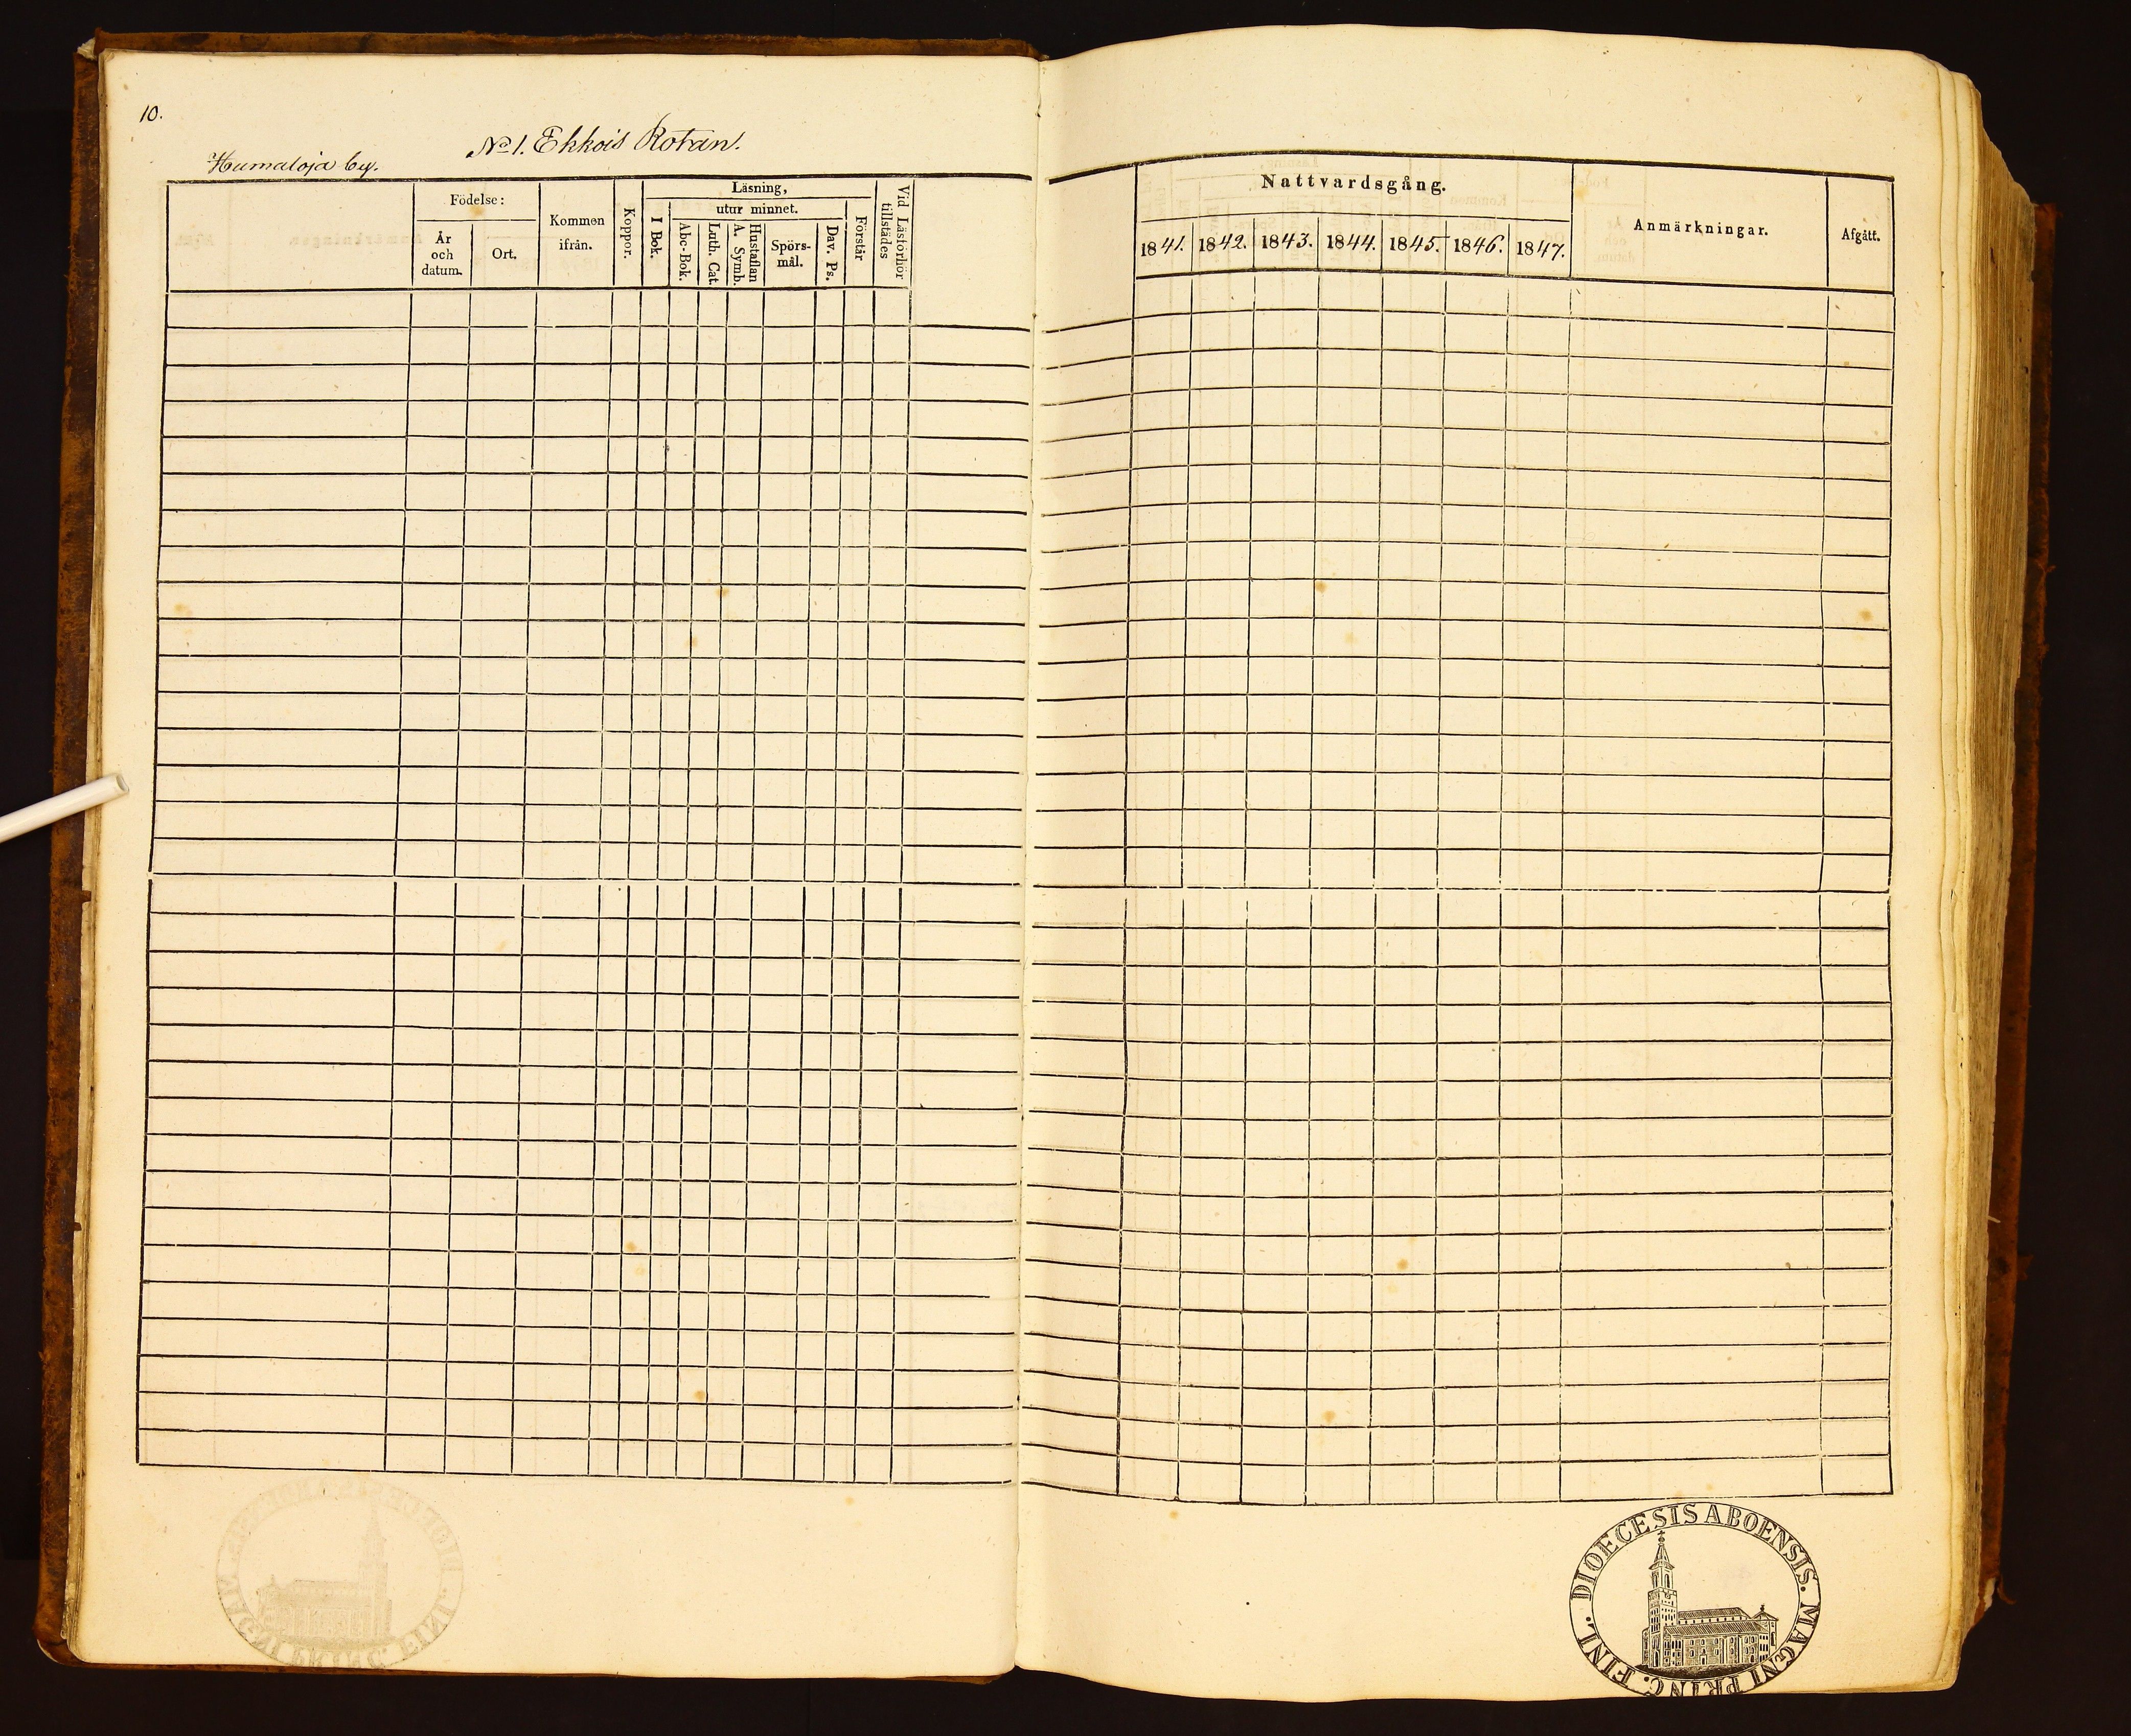 10.
No 1. Ekkois Rotan.
Humaloja by.
Födelse:
År
och
datum.
Ort.
Kommen
ifrån.
Koppor.
Läsning,
I Bok.
utur minnet.
Abc-Bok.
Luth. Cat.
A. Symb.
Hustaflan
Spörs-
mål.
Dav. Ps.
Förstår
Vid Läsförhör
tillstädes
Nattvardsgång.
1841. 1842. 1843. 1844. 1845. 1846. 1847.
Anmärkningar.
Afgått.
DIOECESIS ABOENSIS. MAGNI PRINC. FINL.